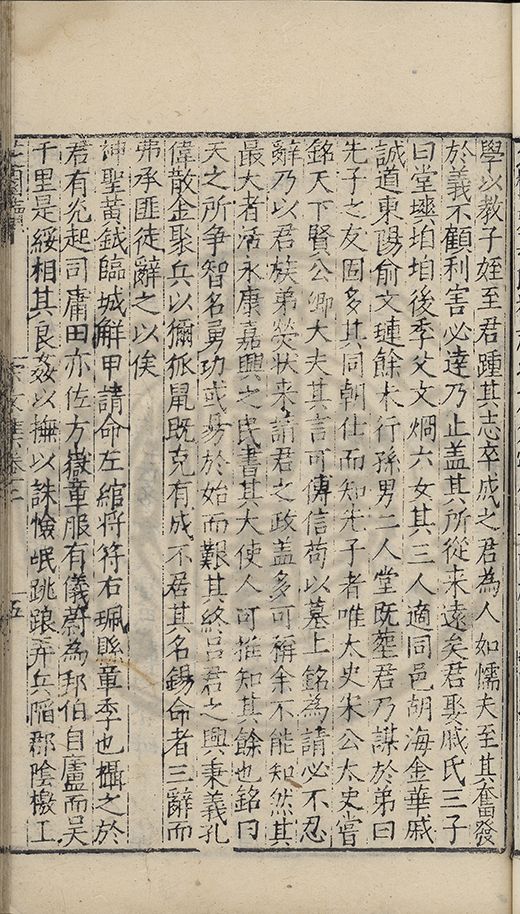 學以教子姪至君踵其志卒成之君為人如懦夫至其奮發
於義不顧利害必達乃止盖其所從来遠矣君娶戚氏三子
曰堂堧垍垍後季父文烱六女其三人適同邑胡海金華戚
誠道東陽俞文璉餘未行孫男二人堂既塟君乃謀於弟曰
先子之友固多其同朝仕而知先子者唯太史宋公太史嘗
銘天下賢公卿大夫其言可傳信苟以墓上銘為請必不忍
辭乃以君族弟熒状来請君之政盖多可稱余不能知然其
最大者活永康嘉興之民書其大使人可推知其餘也銘曰
天之所争智名勇功或昜於始而艱其終吕君之興秉義孔
偉散金聚兵以獮狐鼠既克有成不居其名錫命者三辭而
弗承匪徒辭之以俟
神聖黄鉞臨城觧甲請命左綰将符右珮縣章季也攝之於
君有光起司庸田亦佐方嶽章服有儀蔚為邦伯自廬而吴
千里是綏相其良姦以撫以誅憸氓跳踉弄兵陷郡陰檄工
宋文集卷十二 十五